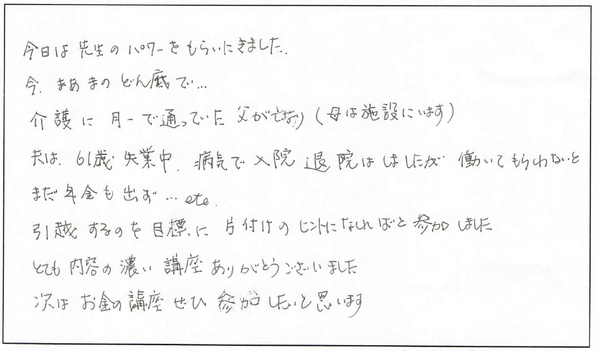 今日は先生のパワーをもらいにきました.
今、まあまのどん底で…
介護に月一で通っていた父が亡なり(母は施設にいます)
夫は、61歳失業中、病気で入院退院はしましたが働いてもらわないと
まだ年金も出ず…etc.
引越するのを目標に片付けのヒントになればと参加しました
とても内容の濃い講座ありがとうございました
次はお金の講座ぜひ参加したいと思います